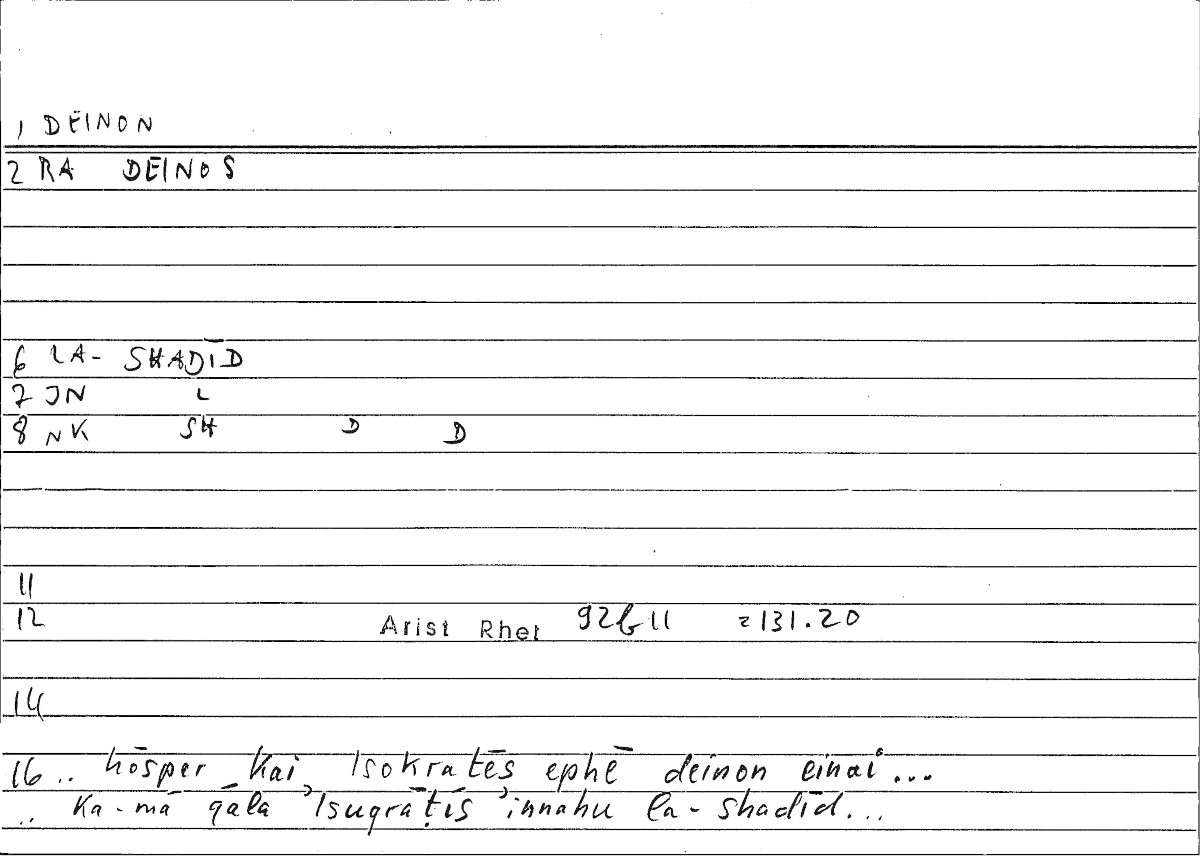 1 DEINON
2 RA DEINOS
6 LA- SHADĪD
7 JN L
8 NK SH D D
11
12 Arist Rhet 92b11 =131.20
14
16 .. hōsper kai Isokratēs ephē deinon einai ...
.. Ka-mā qāla ʾIsuqrāṭīs ʾinnahu la-shadīd...